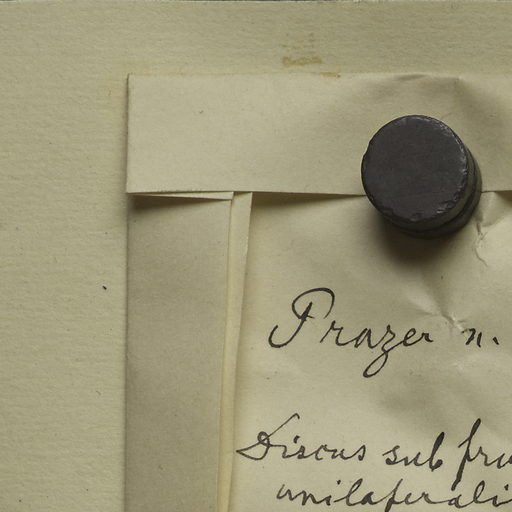 Frazer n.
Discus sub fru
unilaferali